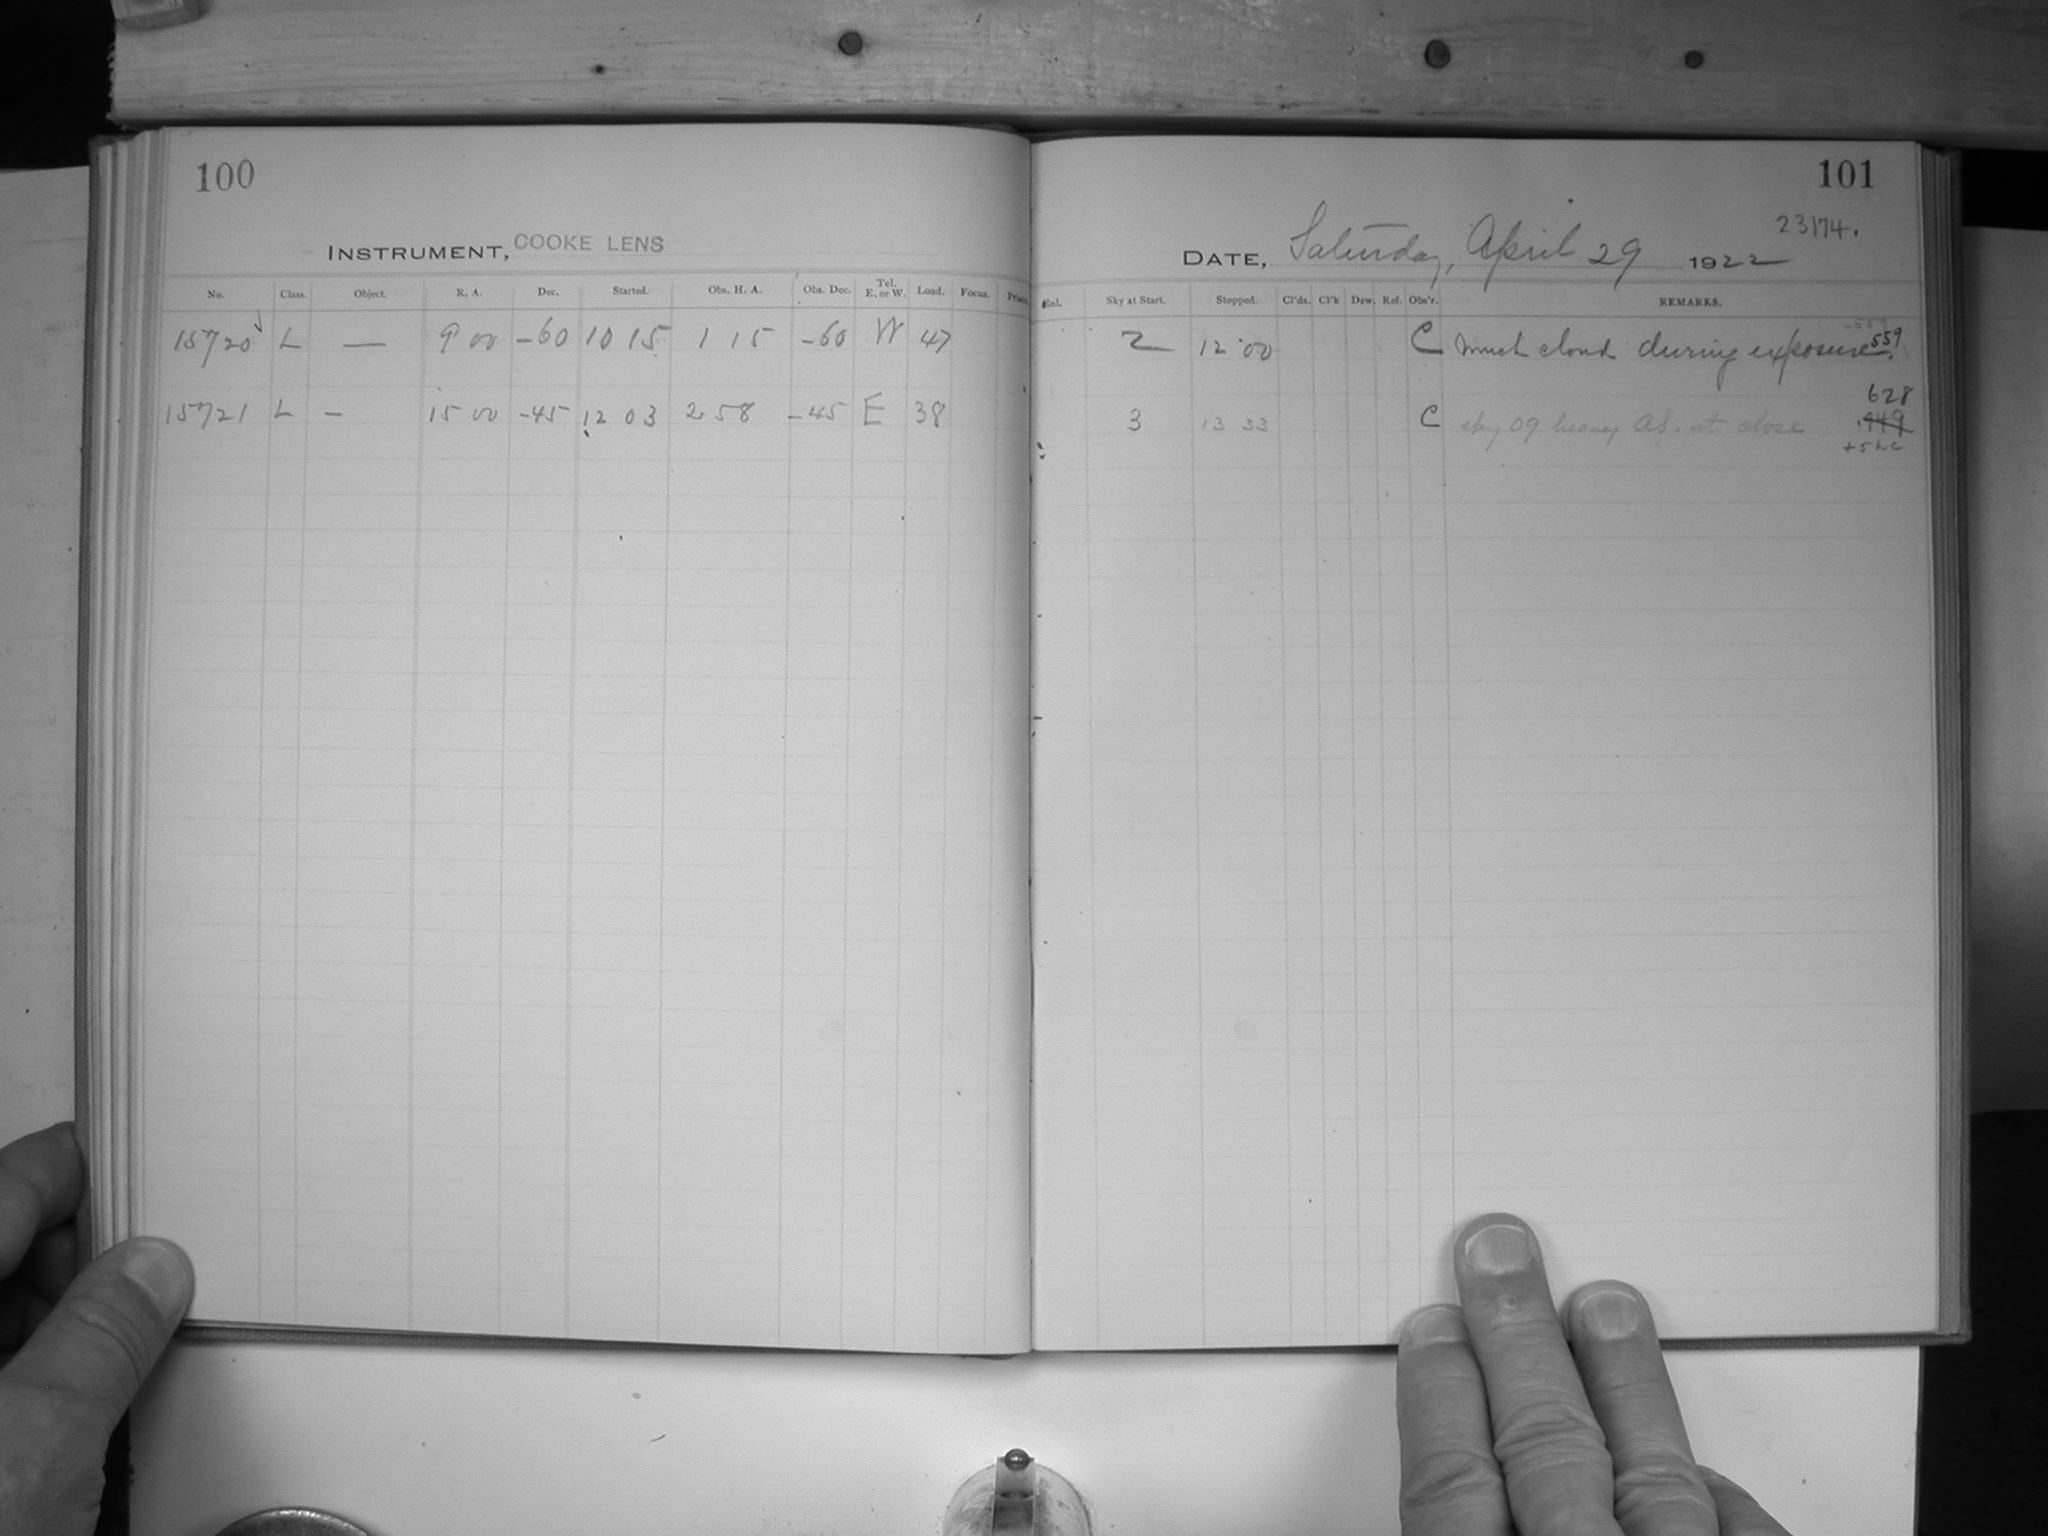 100
INSTRUMENT, COOKE LENS
No. Class. Object. R. A. Dec. Started. Obs. H. A. Obs. Dec. Tel. E. or W. Load. Focus.
15720 L — 9 00 -60 10 15 1 15 -60 W 47
15721 L - 15 00 -45 12 03 2 58 -45 E 38
101
23174.
DATE, Saturday, April 29 1922
Sky at Start. Stopped. Cl'ds. Cl'k Dew. Ref. Obs'r. REMARKS.
2 12 00 C Much cloud during exposure .559
628
3 13 33 C sky 09 heavy AS. at close .449